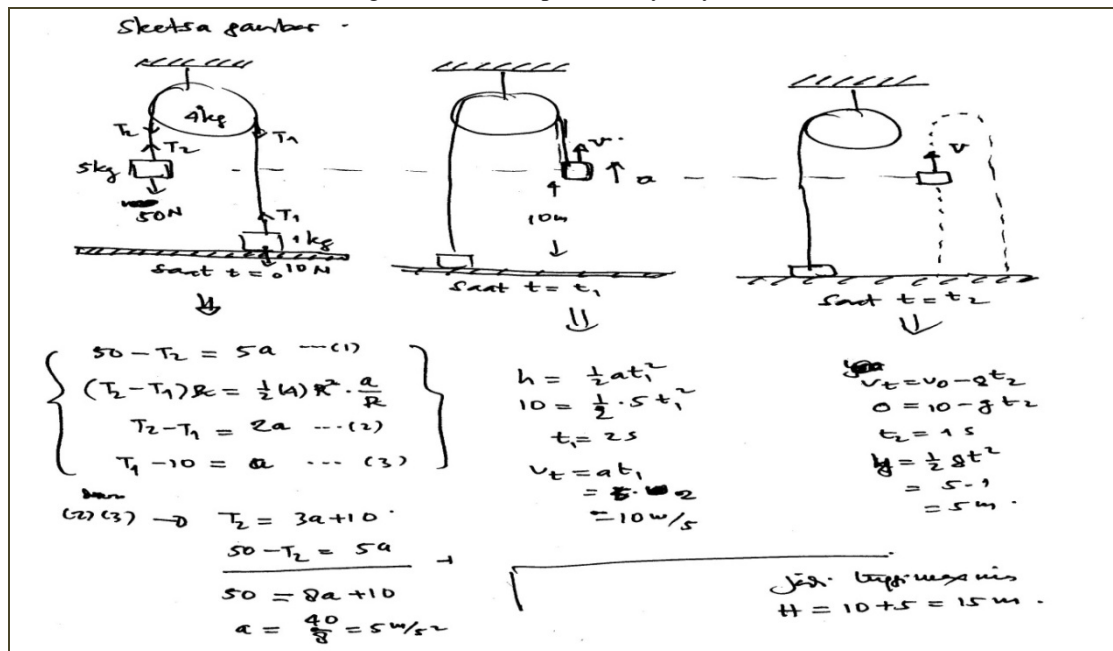 Sketsa gambar.
4kg
T₂
T₂
T₁
5kg
50N
T₁
1kg
10N
saat t = 0
v
a
10m
saat t = t₁
v
saat t = t₂
50 - T₂ = 5a ---(1)
(T₂-T₁)R = ½(4)R². a/R
T₂-T₁ = 2a ...(2)
T₁ - 10 = a ... (3)
(2)(3) → T₂ = 3a + 10
50 - T₂ = 5a
+
50 = 8a + 10
a = 40/8 = 5 m/s²
h = ½ at₁²
10 = ½ . 5 t₁²
t₁ = 2s
v_t = at₁
= 5. 2
= 10 m/s
v_t = v₀ - gt₂
0 = 10 - gt₂
t₂ = 1s
y = ½ gt²
= 5.1
= 5m.
Jadi tinggi maximis
H = 10 + 5 = 15 m.